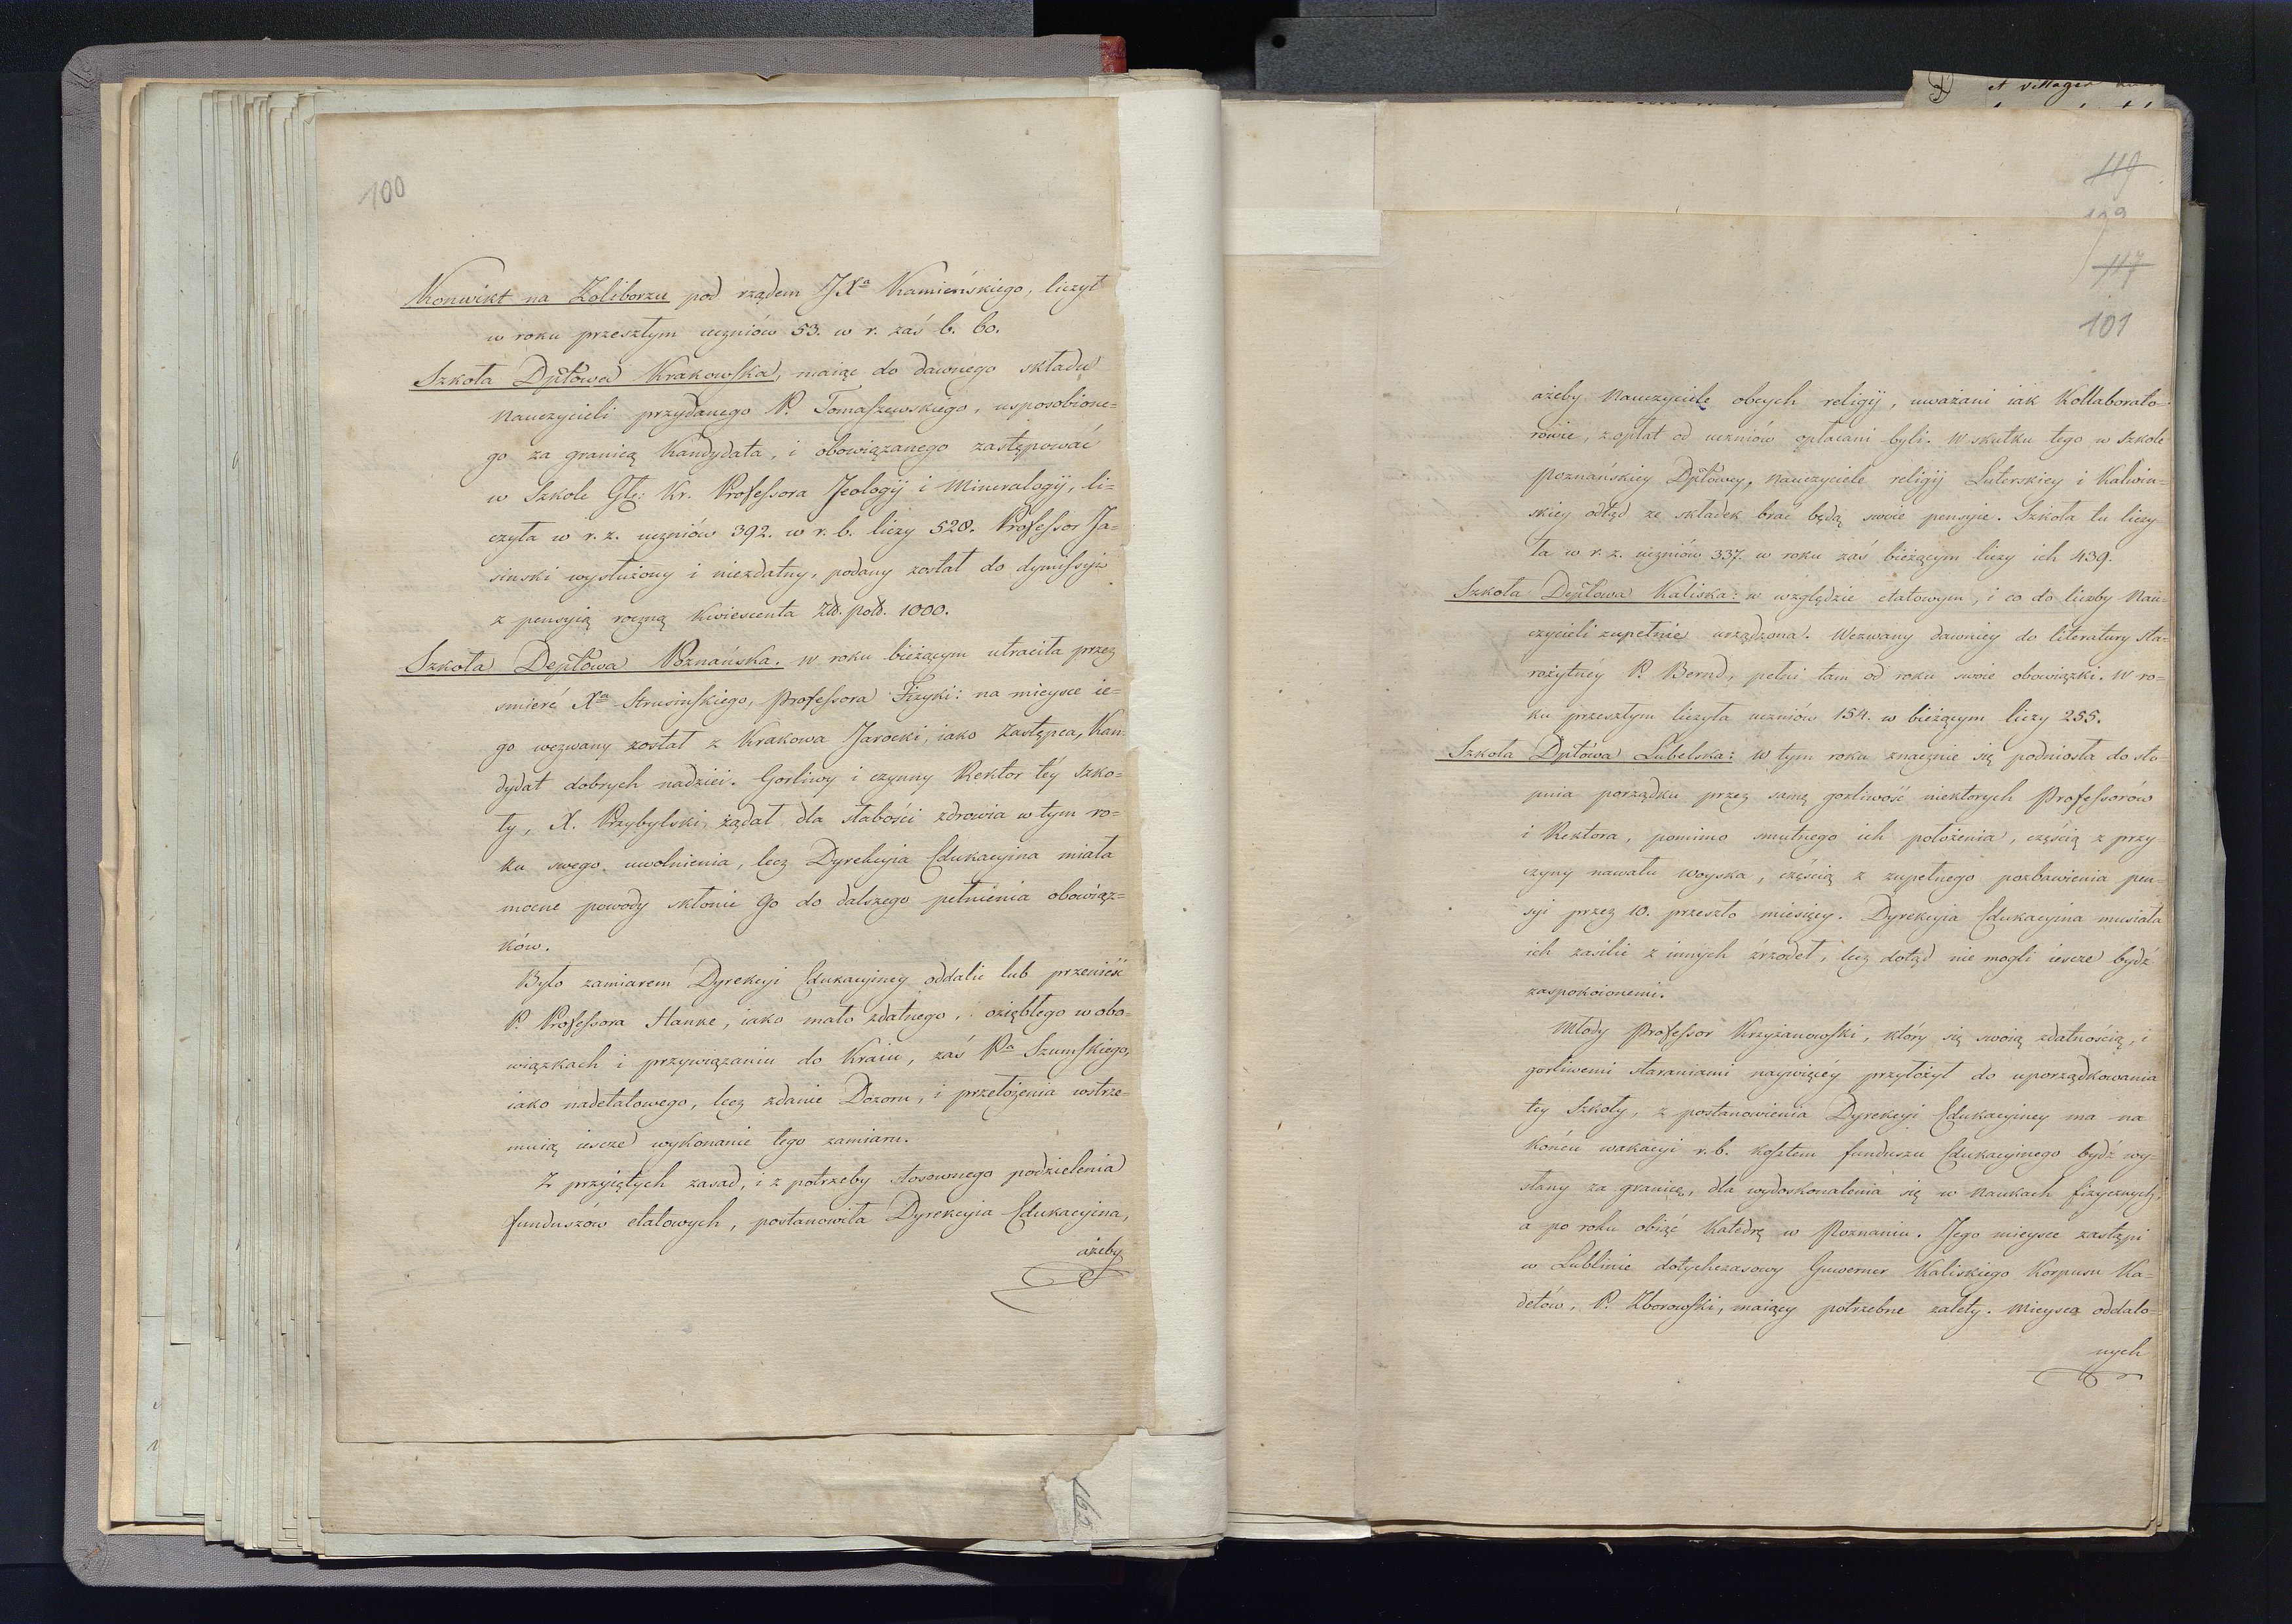 100
Konwikt na Żoliborzu pod rządem JXa Kamieńskiego, liczył
w roku przeszłym uczniów 53. w r. zaś b. 60.
Szkoła Dptowa Krakowska, maiąc do dawnego składu
Nauczycieli przydanego P. Tomaszewskiego, usposobione=
go za granicą Kandydata, i obowiązanego zastępować
w Szkole Gł: Kr. Professora Jeologij i Mineralogij, li=
czyła w r. z. uczniów 392. w r. b. liczy 520. Professor Ja=
sinski wysłużony i niezdatny, podany został do dymissyi
z pensyią roczną Kwiescenta Złł. polł. 1000.
Szkoła Deptowa Poznańska. w roku bieżącym utraciła przez
smierć Xa Strusinskiego, Professora Fizyki: na mieysce ie=
go wezwany został z Krakowa Jarocki, iako Zastępca, Kan=
dydat dobrych nadziei. Gorliwy i czynny Rektor téy szko=
ły, X. Przybylski, żądał dla słabości zdrowia w tym ro=
ku swego uwolnienia, lecz Dyrekcyia Edukacyina miała
mocne powody skłonić Go do dalszego pełnienia obowiąz=
ków.
Było zamiarem Dyrekcyi Edukacyiney oddalić lub przenieść
P. Professora Hanke, iako mało zdatnego, oziębłego w obo=
wiązkach i przywiązaniu do Kraiu, zaś Pa Szumskiego,
iako nadetatowego, lecz zdanie Dozoru, i przełożenia wstrze=
muią ieszcze wykonanie tego zamiaru.
Z przyiętych zasad, i z potrzeby stosownego podzielenia
funduszów etatowych, postanowiła Dyrekcyia Edukacyina,
ażeby
119
109
117
101
ażeby Nauczyciele obcych religij, uważani iak Kollaborato=
rowie, z opłat od uczniów opłacani byli. W skutku tego w szkole
Poznańskiey Dptowey, Nauczyciele religij Luterskiey i Kalwin=
skiey odtąd ze składek brać będą swoie pensyie. Szkoła tu liczy
ła w r. z. uczniów 337. w roku zaś bieżącym liczy ich 439.
Szkoła Deptowa Kaliska: w względzie etatowym, i co do liczby Nau=
czycieli zupełnie urządzona. Wezwany dawniey do literatury sta=
rożytnéy P. Bernd, pełni tam od roku swoie obowiązki. W ro=
ku przeszłym liczyła uczniów 154. w bieżącym liczy 255.
Szkoła Dptowa Lubelska: w tym roku znacznie się podniosła do sto
pnia porządku przez samą gorliwość niektorych Professorów
i Rektora, pomimo smutnego ich położenia, częścią z przy=
czyny nawału woyska, częścią z zupełnego pozbawienia pen=
syi przez 10. przeszło miesięcy. Dyrekcyia Edukacyina musiała
ich zasilić z innych źrzodeł, lecz dotąd nie mogli ieszcze bydź
zaspokoionemi.
Młody Professor Krzyżanowski, który się swoią zdatnością, i
gorliwemi staraniami naywięcéy przyłożył do uporządkowania
tey Szkoły, z postanowienia Dyrekcyi Edukacyiney ma na
końcu wakacyi r. b. kosztem funduszu Edukacyinego bydź wy=
słany za granicę, dla wydoskonalenia się w Naukach fizycznych,
a po roku obiąć Katedrę w Poznaniu. Jego mieysce zastąpi
w Lublinie dotychczasowy Guwerner Kaliskiego Korpusu Ka=
detów, P. Zborowski, maiący potrzebne zalety. Mieysca oddalo=
nych